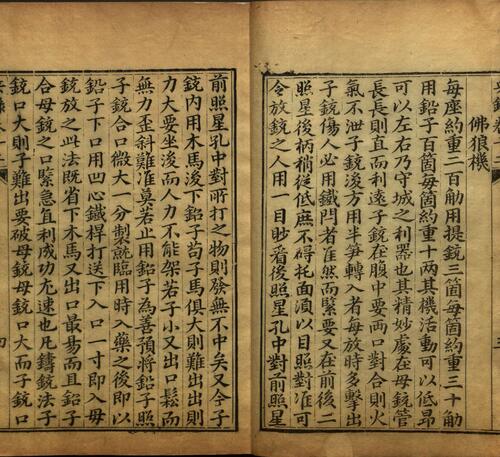 佛狼機
每座約重二百觔用提銃三箇每箇約重三十觔
用鉛子百箇每箇約重十兩其機活動可以低昂
可以左右乃守城之利器也其精妙處在母銃管
長長則直而利遠子銃在腹中要兩口對合則火
氣不泄子銃後方用半笋轉入者每放時多擊出
子銃傷人必用鐵閂者然而緊要又在前後二
照星後柄稍從低庶不碍托面須以目照對准可
令放銃之人用一目眇看後照星孔中對前照星
前照星孔中對所打之物則發無不中矣又今子
銃内用木馬後下鉛子苟子馬俱大則難出出則
力大要坐後而人力不能架若子小又出口鬆而
無力歪斜難准莫若止用鉛子為善預將鉛子照
子銃合口微大一分製就臨用時入藥之後即以
鉛子下口用凹心鐵桿打送下入口一寸即入母
銃放之此法既省下木馬又出口最易而且鉛子
合母銃之口緊急直利成功尤速也凡鑄銃法子
銃口大則子難出要破母銃母銃口大而子銃口